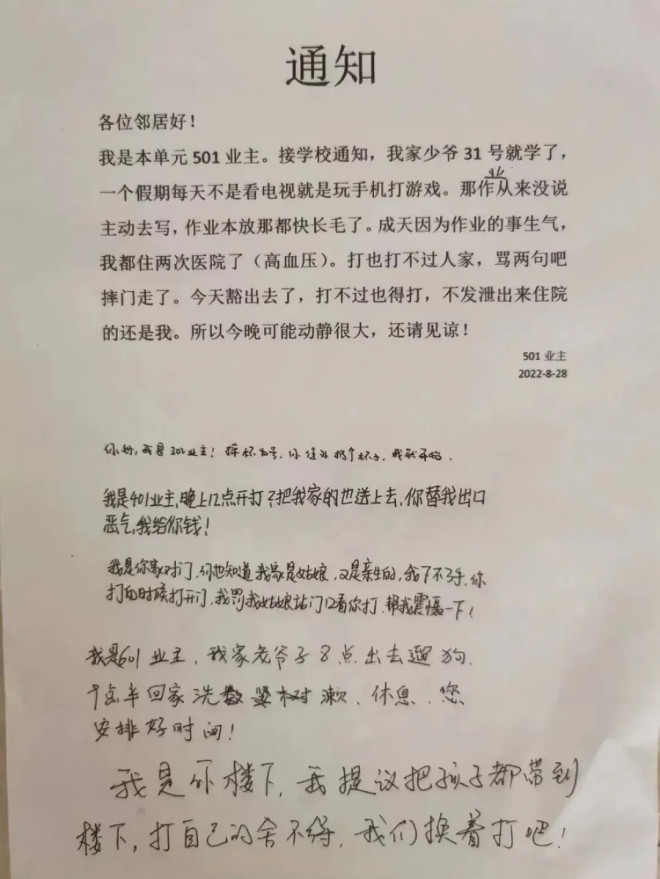 通知
各位邻居好！
我是本单元 501 业主。接学校通知，我家少爷 31 号就学了，
一个假期每天不是看电视就是玩手机打游戏。那作业从来没说
主动去写，作业本放那都快长毛了。成天因为作业的事生气，
我都住两次医院了（高血压）。打也打不过人家，骂两句吧
摔门走了。今天豁出去了，打不过也得打，不发泄出来住院
的还是我。所以今晚可能动静很大，还请见谅！
501 业主
2022-8-28
你好，我是301业主！摔杯为号，你往外扔个杯子，我就开始。
我是401业主，晚上12点开打？把我家的也送上去，你替我出口
恶气，我给你钱！
我是你家对门，你也知道我家是姑娘，又是亲生的，我下不了手，你
打的时候打开门，我罚我姑娘站门口看你打，帮我震慑一下！
我是601业主，我家老爷子8点出去遛狗，
点半回家洗漱，休息，您
安排好时间！
我是你楼下，我提议把孩子都带到
楼下，打自己的舍不得，我们换着打吧！